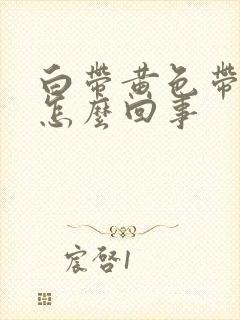 白帶黃色帶
怎麼回事
宸啓1